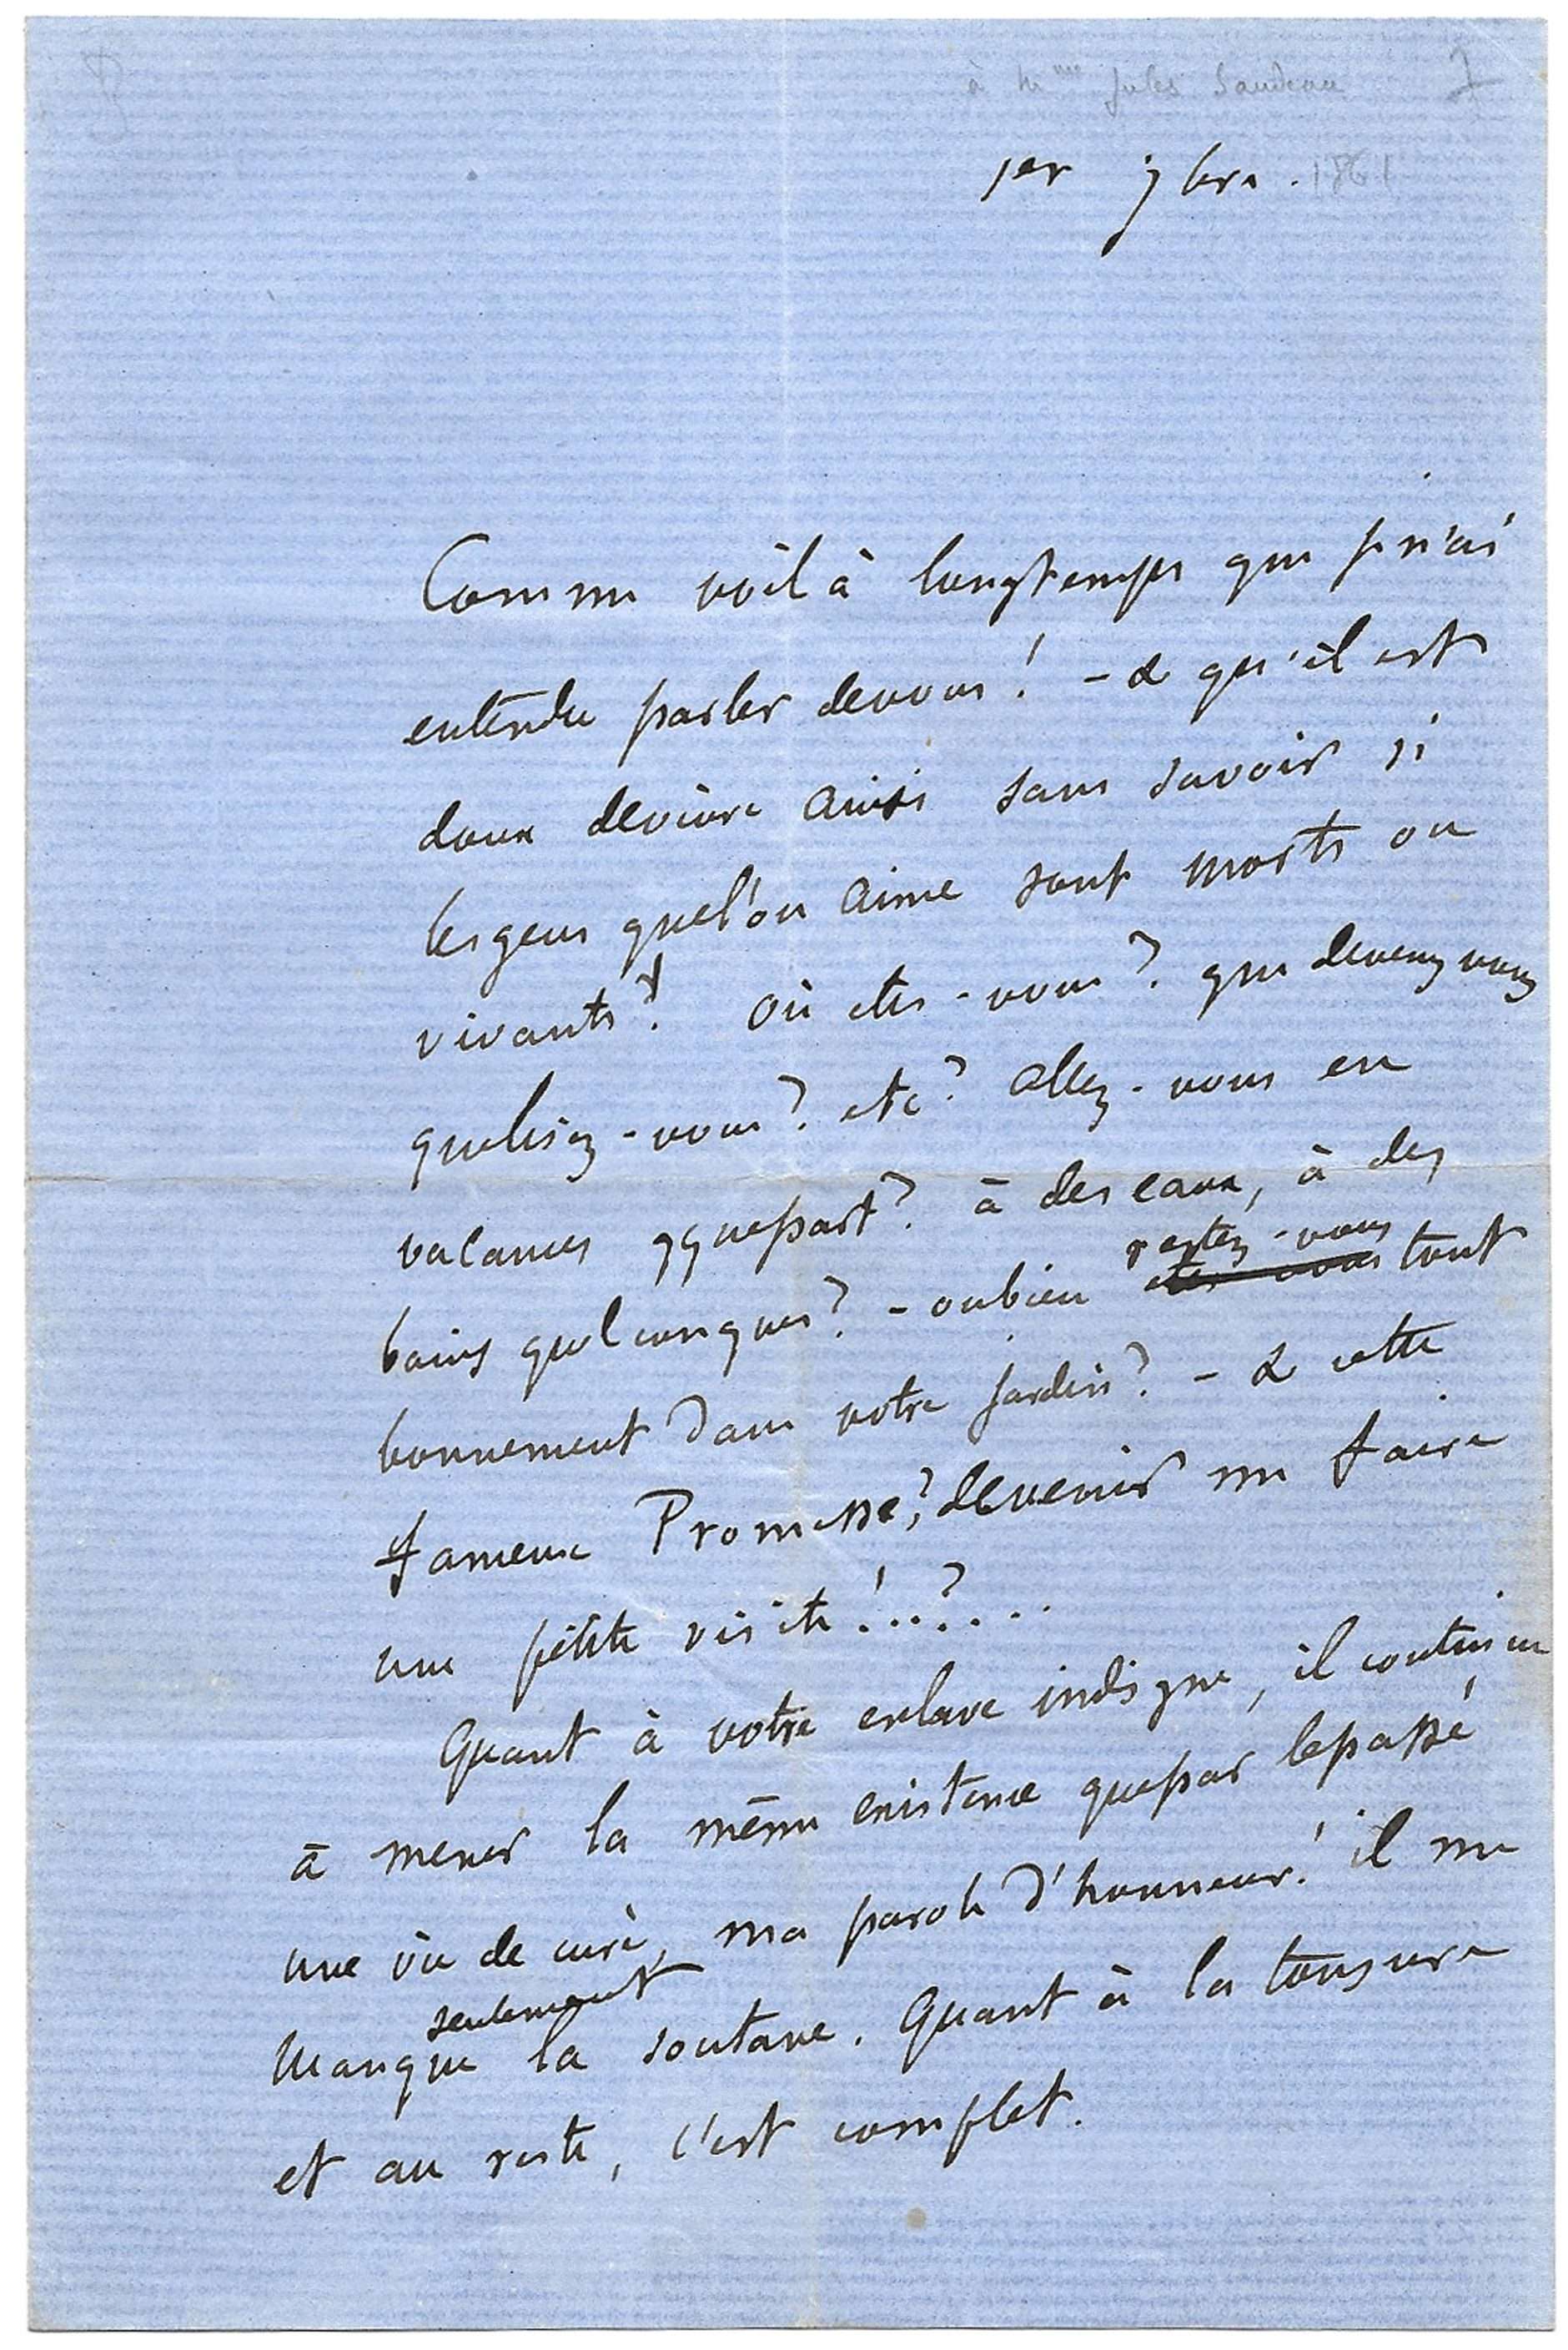 à Mme Jules Sandeau
1er 7bre. 1861
Comme voilà longtemps que je n'ai
entendu parler de vous! – & qu'il est
doux de vivre ainsi sans savoir si
les gens que l'on aime sont morts ou
vivants! Où êtes-vous? que devenez vous
que lisez-vous? etc? Allez-vous en
vacances qque part? à des eaux, à des
restez-vous
bains quelconques? – ou bien êtes vous tout
bonnement dans votre jardin? – & cette
fameuse Promesse, de venir me faire
une petite visite!..?...
Quant à votre esclave indigne, il continue
à mener la même existence que par le passé
une vie de curé, ma parole d'honneur! il me
seulement
manque la soutane. Quant à la tonsure
et au reste, c'est complet.